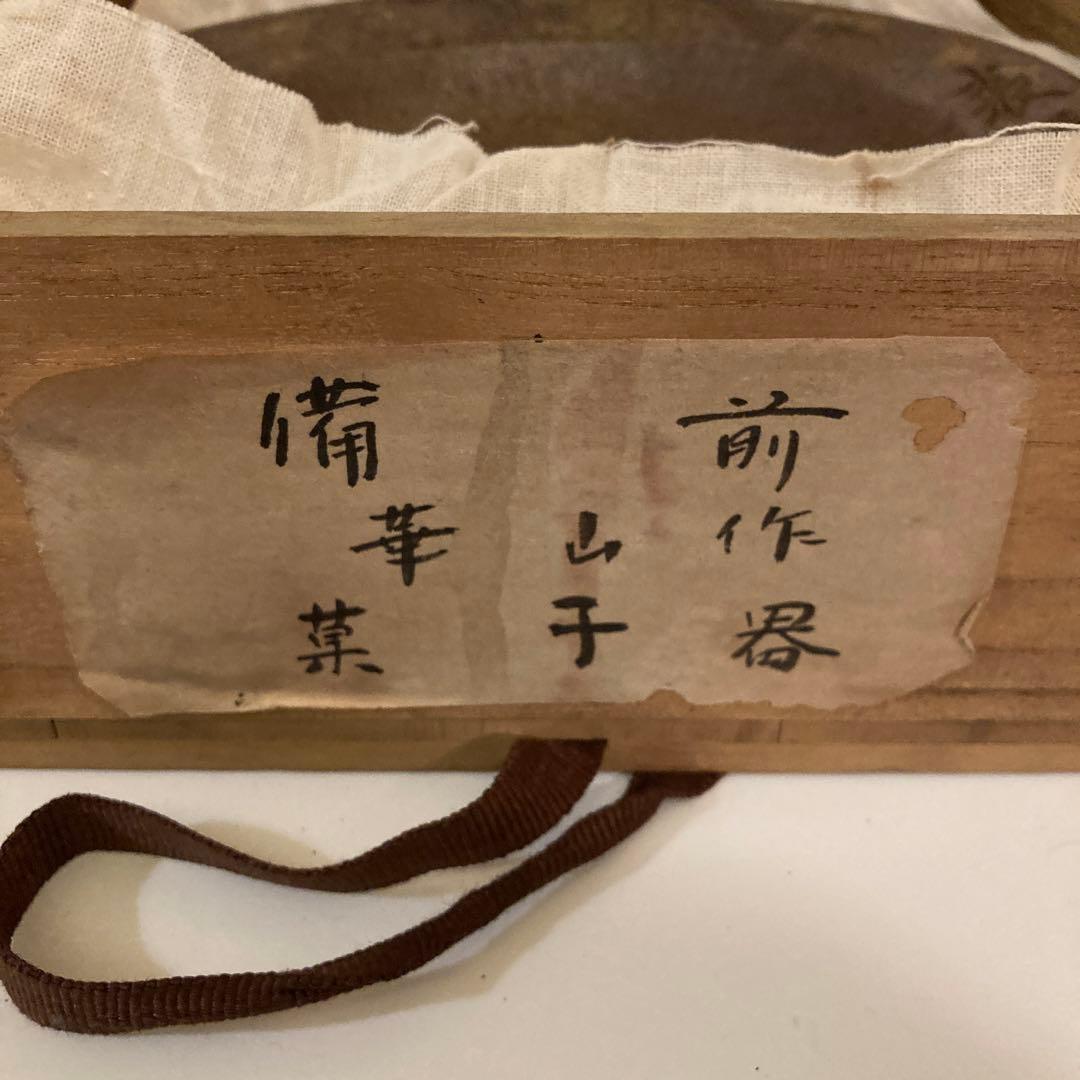 備前
華山作
菓子器